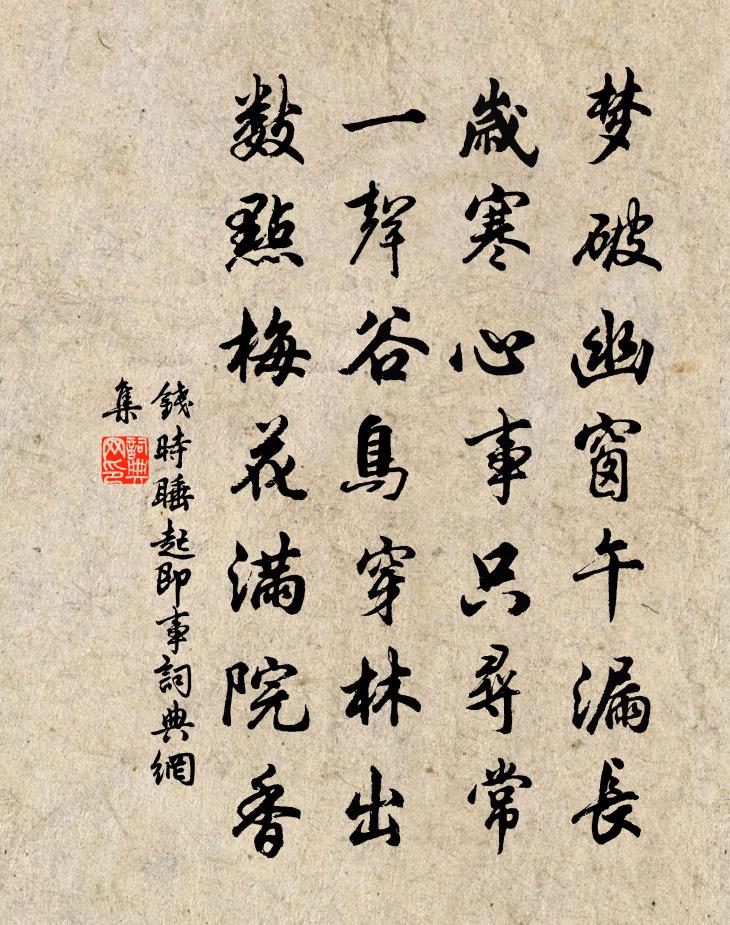 梦破幽窗午漏長
歲寒心事只尋常
一聲谷鳥穿林出
数點梅花满院香
錢時睡起即事詞典網
集
詞典
网印